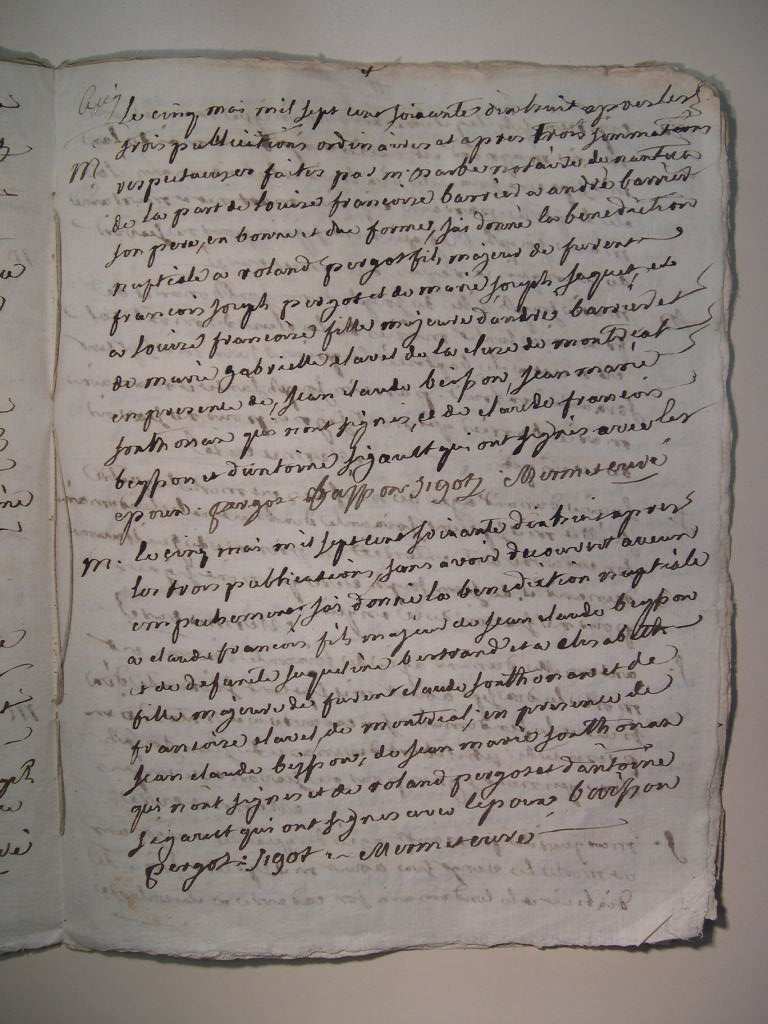 le cinq mai mil sept cent soixante dixhuit apres les
trois publications ordinaires et apres trois sommations
respectueuses faites par m barbe notaire de nantua
de la part de louise francoise barrier a andré barrier
son pere, en bonne et due forme, jai donné la benediction
nuptiale a roland pergot fils majeur de furent
francois joseph pergot et de marie joseph jaquet, et
a louise francoise fille majeure dandré barrier et
de marie gabrielle clavel de la cluse de montreal
en presence de, jean claude beisson, jean marie
sonthonax qui nont signés, et de claude francois
beysson et dantoine sigault qui ont signés avec les
epoux. pergot Baisson Sigot Mermet curé
M. le cinq mai mil sept cent soixante dixhuit apres
les trois publications, sans avoir decouvert aucun
empechement, jai donné la benediction nuptiale
a claude francois fils majeur de jean claude beysson
et de defunte jaqueline bertrand et a elisabeth
fille majeure de furent claude sonthonax et de
francoise clavel, de montreal, en presence de
jean claude beisson, de jean marie sonthonax
qui nont signes et de roland pergot et dantoine
sigault qui ont signes avec lepoux boeisson
pergot Sigot Mermet curé